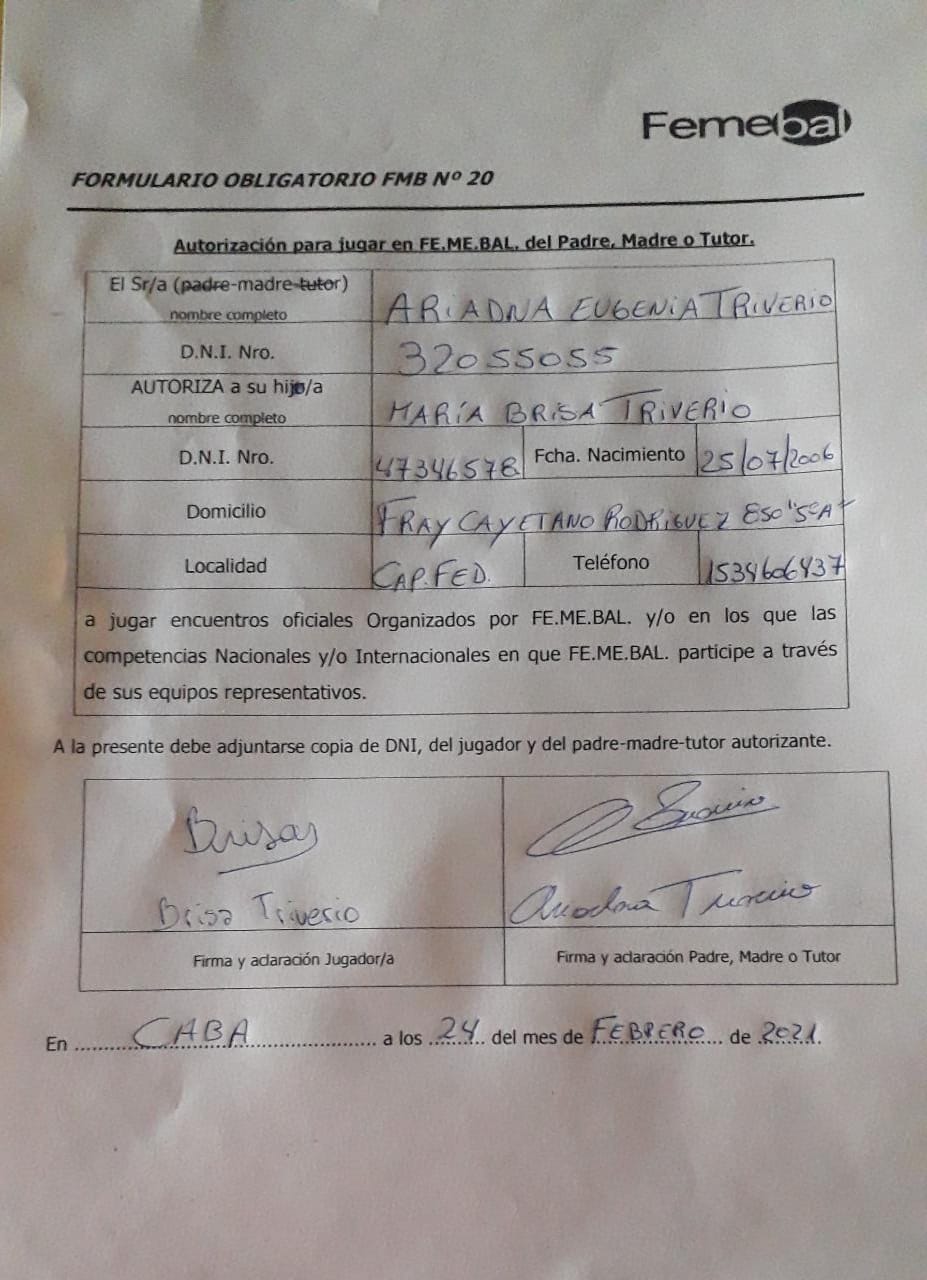 Femebal
FORMULARIO OBLIGATORIO FMB Nº 20
Autorización para jugar en FE.ME.BAL. del Padre, Madre o Tutor.
El Sr/a (padre-madre-tutor) ARIADNA EUGENIA TRIVERIO
nombre completo
D.N.I. Nro. 32055055
AUTORIZA a su hijo/a MARÍA BRISA TRIVERIO
nombre completo
D.N.I. Nro. 47346578 Fcha. Nacimiento 25/07/2006
Domicilio FRAY CAYETANO RODRIGUEZ 850 "5ºA"
Localidad CAP. FED. Teléfono 1534606437
a jugar encuentros oficiales Organizados por FE.ME.BAL. y/o en los que las
competencias Nacionales y/o Internacionales en que FE.ME.BAL. participe a través
de sus equipos representativos.
A la presente debe adjuntarse copia de DNI, del jugador y del padre-madre-tutor autorizante.
Brisa
Brisa Triverio Ariadna Triverio
Firma y aclaración Jugador/a Firma y aclaración Padre, Madre o Tutor
En CABA a los 24 del mes de FEBRERO de 2021.